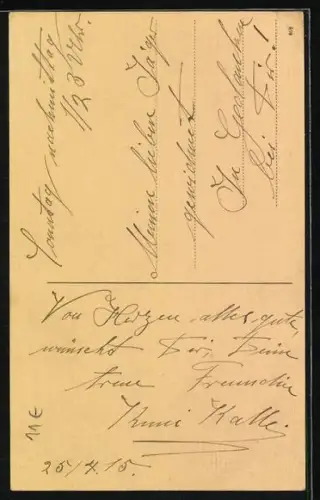 Sonntag nachmittag
1/2 3 Uhr.
Meinem lieben Jäger
gewidmet
In Gedanken
bei Dir!
Von Herzen alles gute,
wünscht Dir, Deine
treue Freundin
Kalle.
11€
25/4.15.